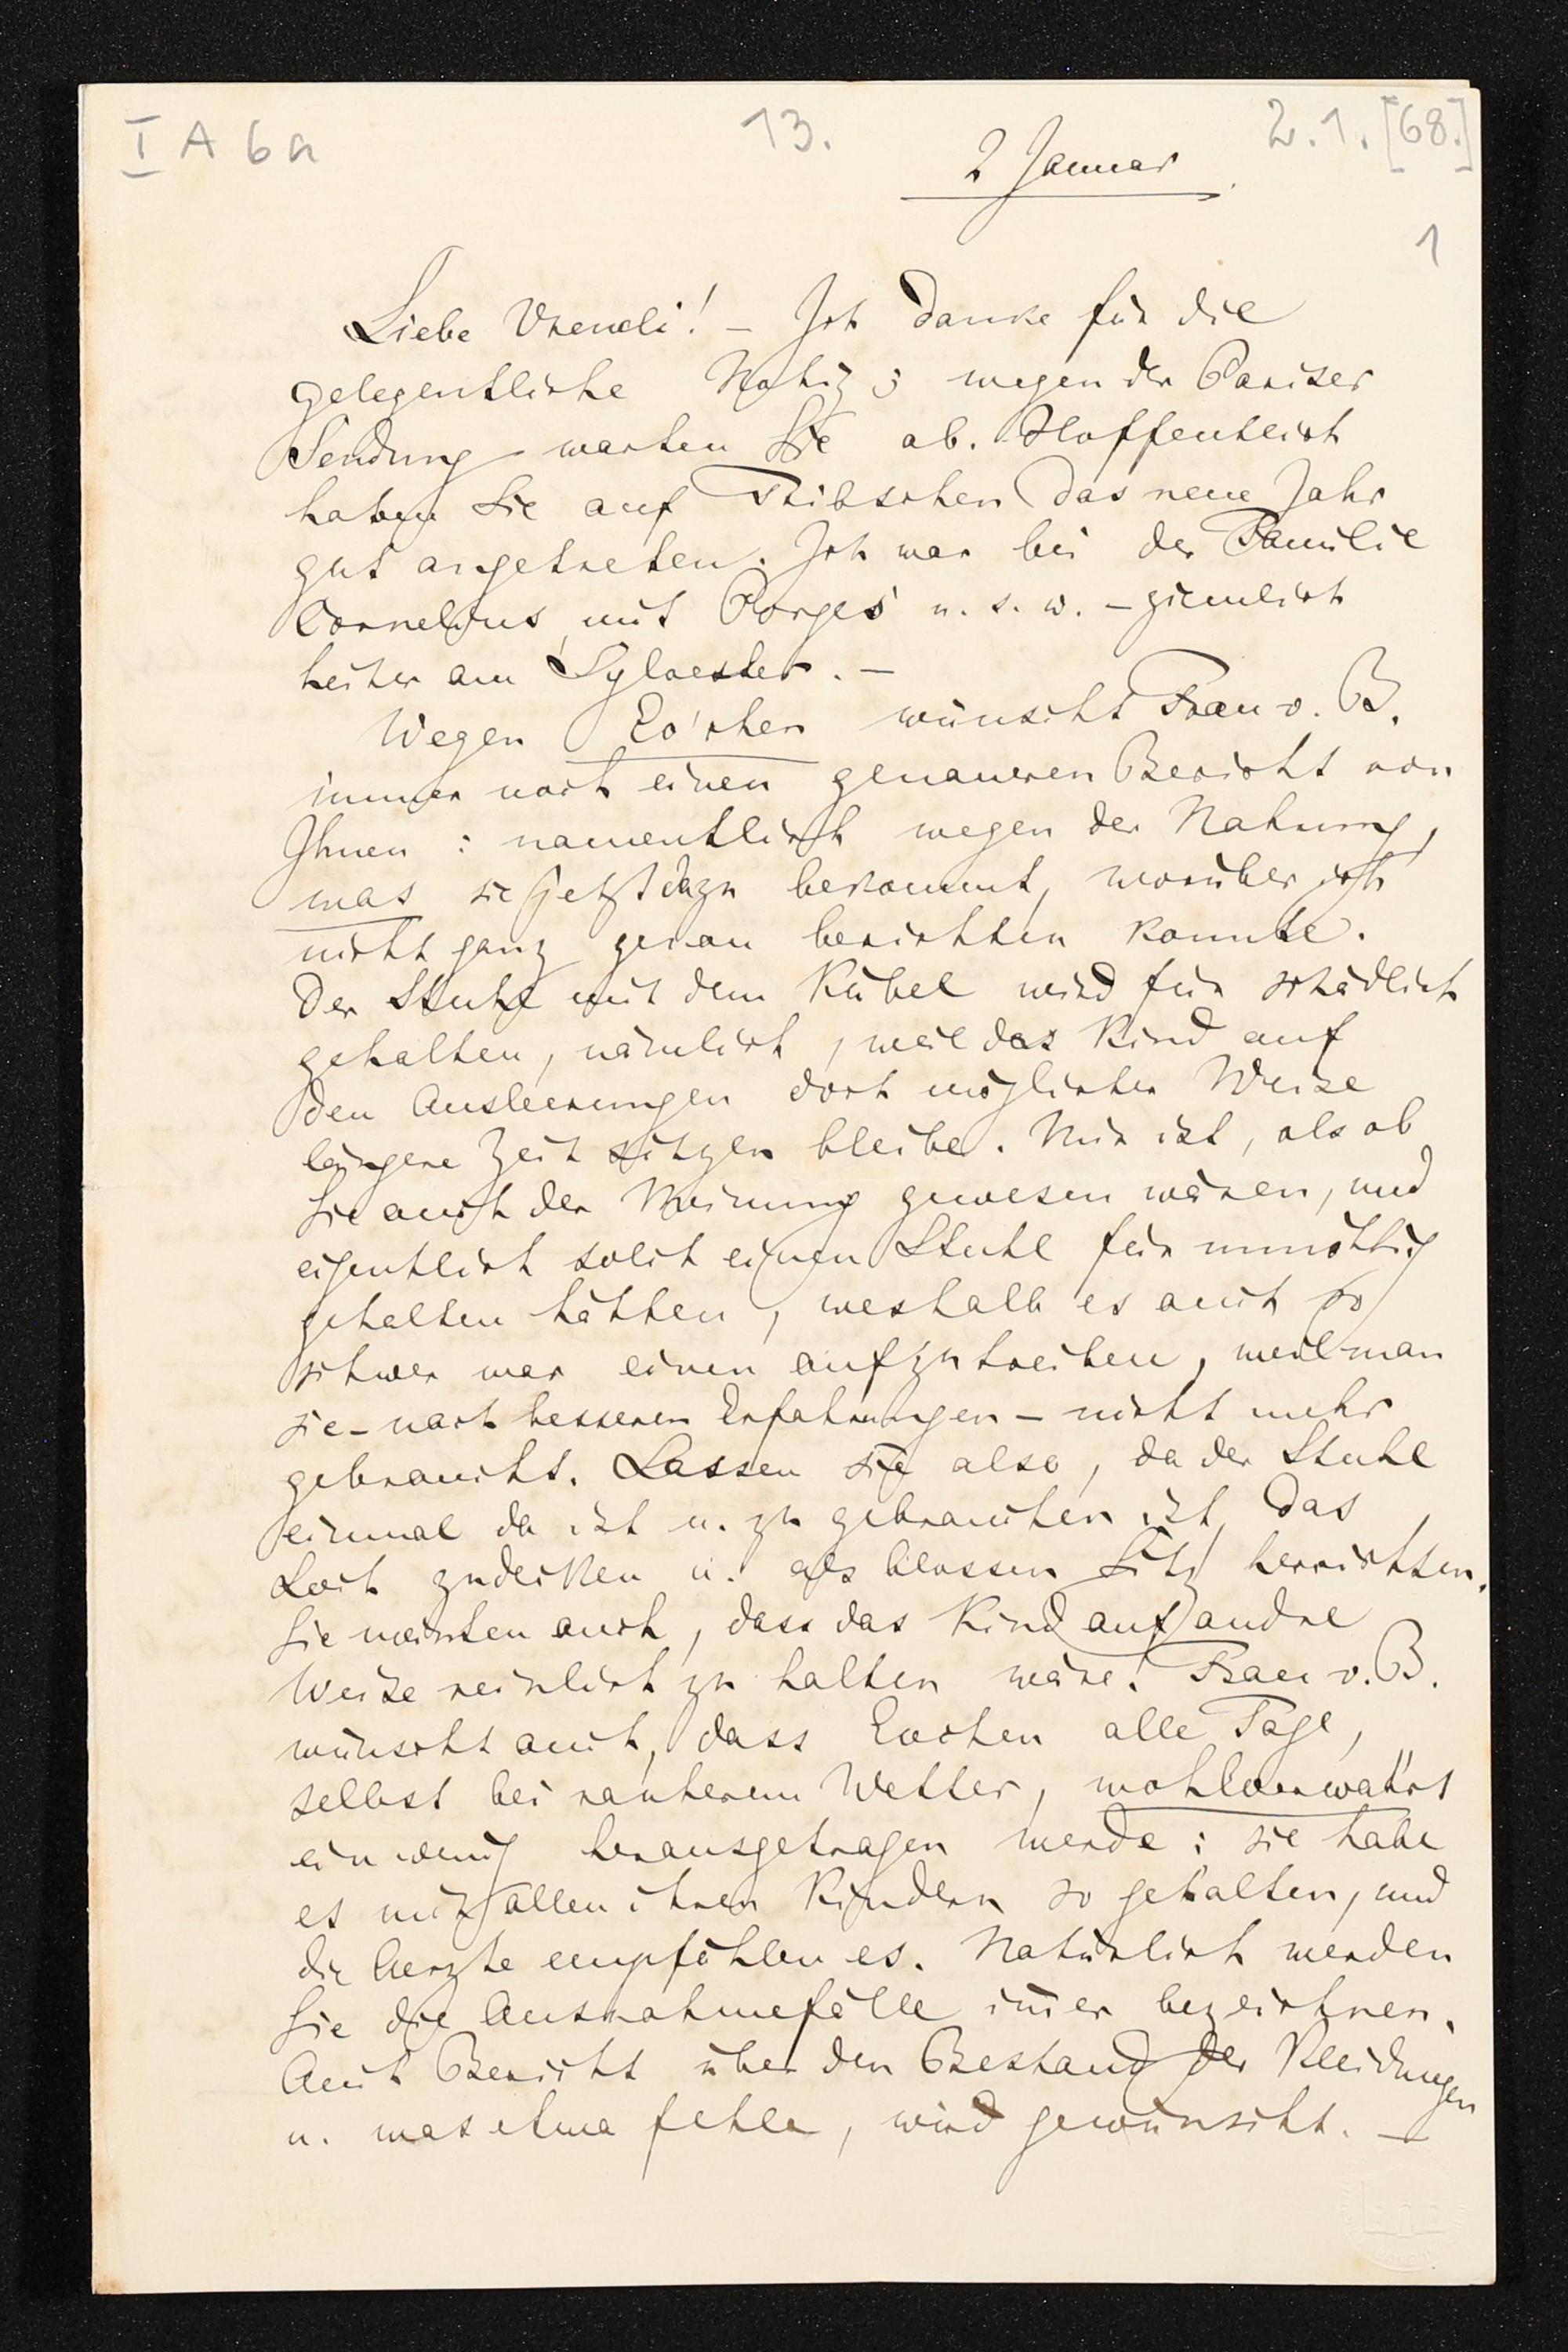 I A 6a
13.
2.1.[68.]
2 Januar
1
Liebe Vreneli! – Ich danke für die
gelegentliche Notiz; wegen der Pariser
Sendung warten Sie ab. Hoffentlich
haben Sie auf Tribschen das neue Jahr
gut angetreten. Ich war bei der Familie
Cornelius, mit Porges u. s. w. – ziemlich
heiter am Sylvester. –
Wegen Ev'chen wünscht Frau v. B.
immer noch einen genaueren Bericht von
Ihnen : namentlich wegen der Nahrung,
was sie jetzt dazu bekommt, worüber ich
nicht ganz genau berichten konnte.
Der Stuhl mit dem Kübel wird für schädlich
gehalten, nämlich, weil das Kind auf
den Ausleerungen dort möglicher Weise
längere Zeit sitzen bleibe. Mir ist, als ob
Sie auch der Meinung gewesen wären, und
eigentlich solch einen Stuhl für unnöthig
gehalten hätten, weshalb es auch so
schwer war einen aufzutreiben, weil man
sie – nach besseren Erfahrungen – nicht mehr
gebraucht. Lassen sie also, da der Stuhl
einmal da ist u. zu gebrauchen ist, das
Loch zudecken u. als blossen Sitz herrichten.
Sie meinten auch, dass das Kind auf andre
Weise reinlich zu halten wäre. Frau v. B.
wünscht auch, dass Evchen alle Tage,
selbst bei rauherem Wetter, wohlverwahrt
ein wenig herausgetragen werde : sie habe
es mit allen ihren Kindern so gehalten, und
die Aerzte empföhlen es. Natürlich werden
Sie die Ausnahmefälle im̄er bezeichnen.
Auch Bericht über den Bestand der Kleidungen
u. was etwa fehle, wird gewünscht. –